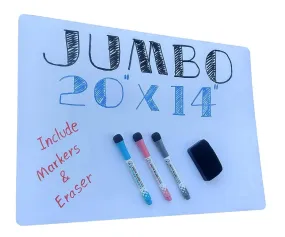 JUMBO
20" X 14"
Include
Markers
&
Eraser